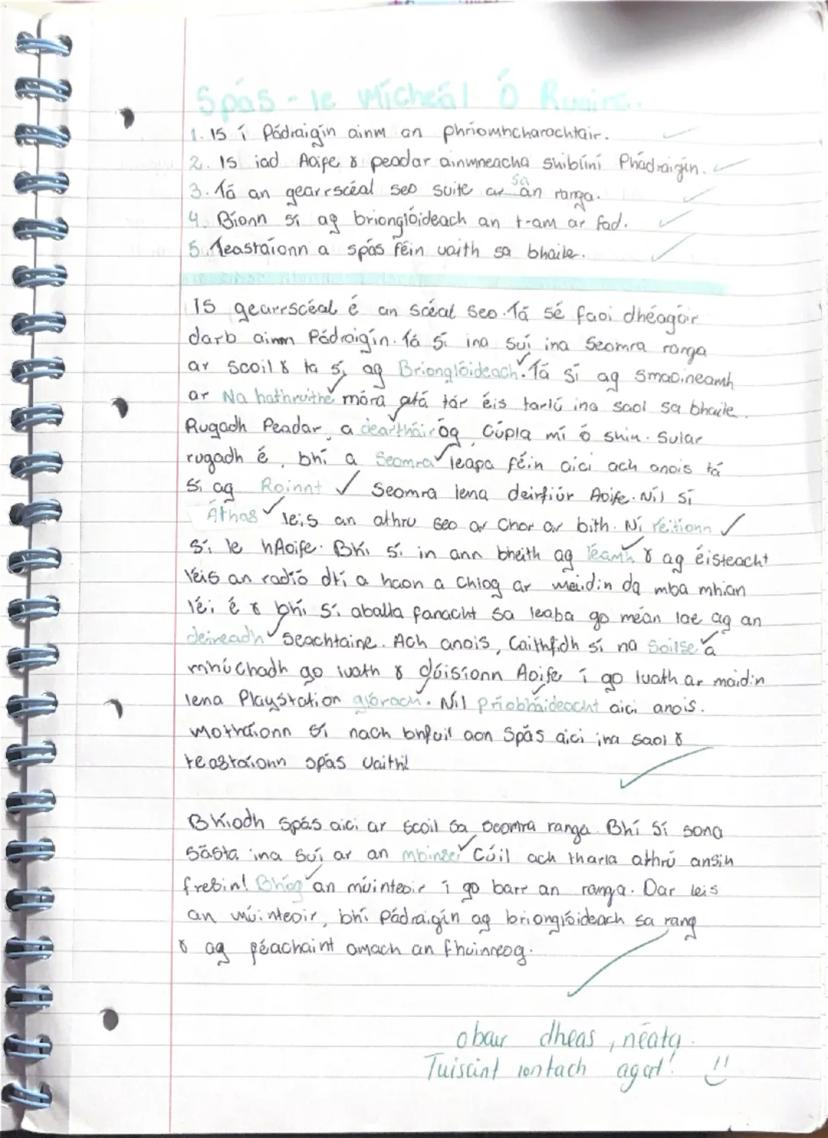 Spás - le Mícheál Ó Ruairc.
1. Is í Pádraigín ainm an phríomhcharachtair.
2. Is iad Aoife & peadar ainmneacha shiblíní Phádraigín.
3. Tá an gearrscéal seo suite ar sa an ranga.
4. Bíonn sí ag brionglóideach an t-am ar fad.
5. Teastaíonn a spás féin uaith sa bhaile.
Is gearrscéal é an scéal seo. Tá sé faoi dhéagóir
darb ainm Pádraigín. Tá sí ina suí ina seomra ranga
ar scoil & ta sí ag Brionglóideach. Tá sí ag smaoineamh
ar Na hathruithe móra atá tár éis tarlú ina saol sa bhaile.
Rugadh Peadar, a deartháir óg, cúpla mí ó shin. Sular
rugadh é, bhí a Seomra leapa féin aici ach anois tá
sí ag Roinnt seomra lena deirfiúr Aoife. Níl sí
Áthas leis an athru seo ar chor ar bith. Ní réitíonn
sí le hAoife. Bhí sí in ann bheith ag léamh & ag éisteacht
léis an radió dtí a haon a chlog ar maidin da mba mhian
léi é & bhí sí aballa fanacht sa leaba go méan lae ag an
deireadh seachtaine. Ach anois, caithfidh sí na Soilse a
mhúchadh go luath & dúisíonn Aoife í go luath ar maidin
lena Playstation glórach. Níl príobháideacht aici anois.
Mothaíonn sí nach bhfuil aon spás aici ina saol &
teastaíonn spás uaithi!
Bhíodh spás aici ar scoil sa seomra ranga. Bhí sí sona
sásta ina suí ar an mbinse cúil ach tharla athrú ansin
freisin! Bhog an múinteoir í go barr an ranga. Dar leis
an múinteoir, bhí Pádraigín ag brionglóideach sa rang
& ag féachaint amach an fhuinneog.
obair dheas, néata.
Tuiscint iontach agat!